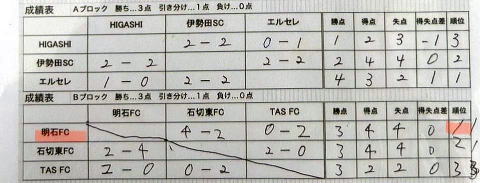 成績表 Aブロック 勝ち…3点 引き分け…1点 負け…0点
HIGASHI 伊勢田SC エルセレ 勝点 得点 失点 得失点差 順位
HIGASHI 2-2 0-1 1 2 3 -1 3
伊勢田SC 2-2 2-2 2 4 4 0 2
エルセレ 1-0 2-2 4 3 2 1 1
成績表 Bブロック 勝ち…3点 引き分け…1点 負け…0点
明石FC 石切東FC TAS FC 勝点 得点 失点 得失点差 順位
明石FC 4-2 0-2 3 4 4 0
石切東FC 2-4 2-0 3 4 4 0
TAS FC 2-0 0-2 3 2 2 0